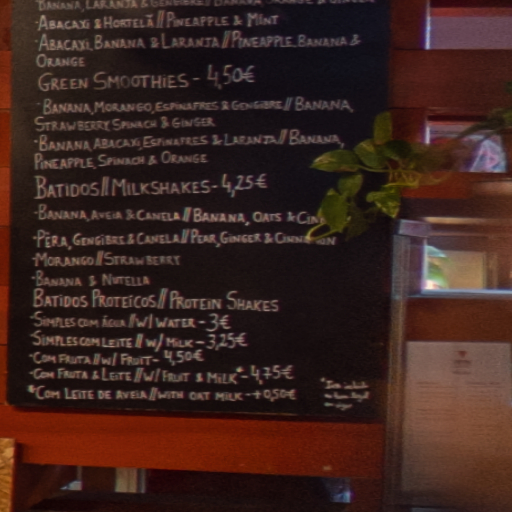 BANANA, LARANJA & GENGIBRE// BANANA, ORANGE & GINGER
·ABACAXI & HORTELÃ // PINEAPPLE & MINT
·ABACAXI, BANANA & LARANJA // PINEAPPLE, BANANA &
ORANGE
GREEN SMOOTHIES - 4,50€
·BANANA, MORANGO, ESPINAFRES & GENGIBRE // BANANA,
STRAWBERRY, SPINACH & GINGER
·BANANA, ABACAXI, ESPINAFRES & LARANJA // BANANA,
PINEAPPLE, SPINACH & ORANGE
BATIDOS // MILKSHAKES - 4,25€
·BANANA, AVEIA & CANELA // BANANA, OATS & CIN
·PÊRA, GENGIBRE & CANELA // PEAR, GINGER & CINNAMON
·MORANGO // STRAWBERRY
·BANANA & NUTELLA
BATIDOS PROTEICOS // PROTEIN SHAKES
·SIMPLES COM ÁGUA // W/ WATER - 3€
·SIMPLES COM LEITE // W/ MILK - 3,25€
·COM FRUTA // W/ FRUIT - 4,50€
·COM FRUTA & LEITE // W/ FRUIT & MILK* - 4,75€
*COM LEITE DE AVEIA // WITH OAT MILK - +0,50€